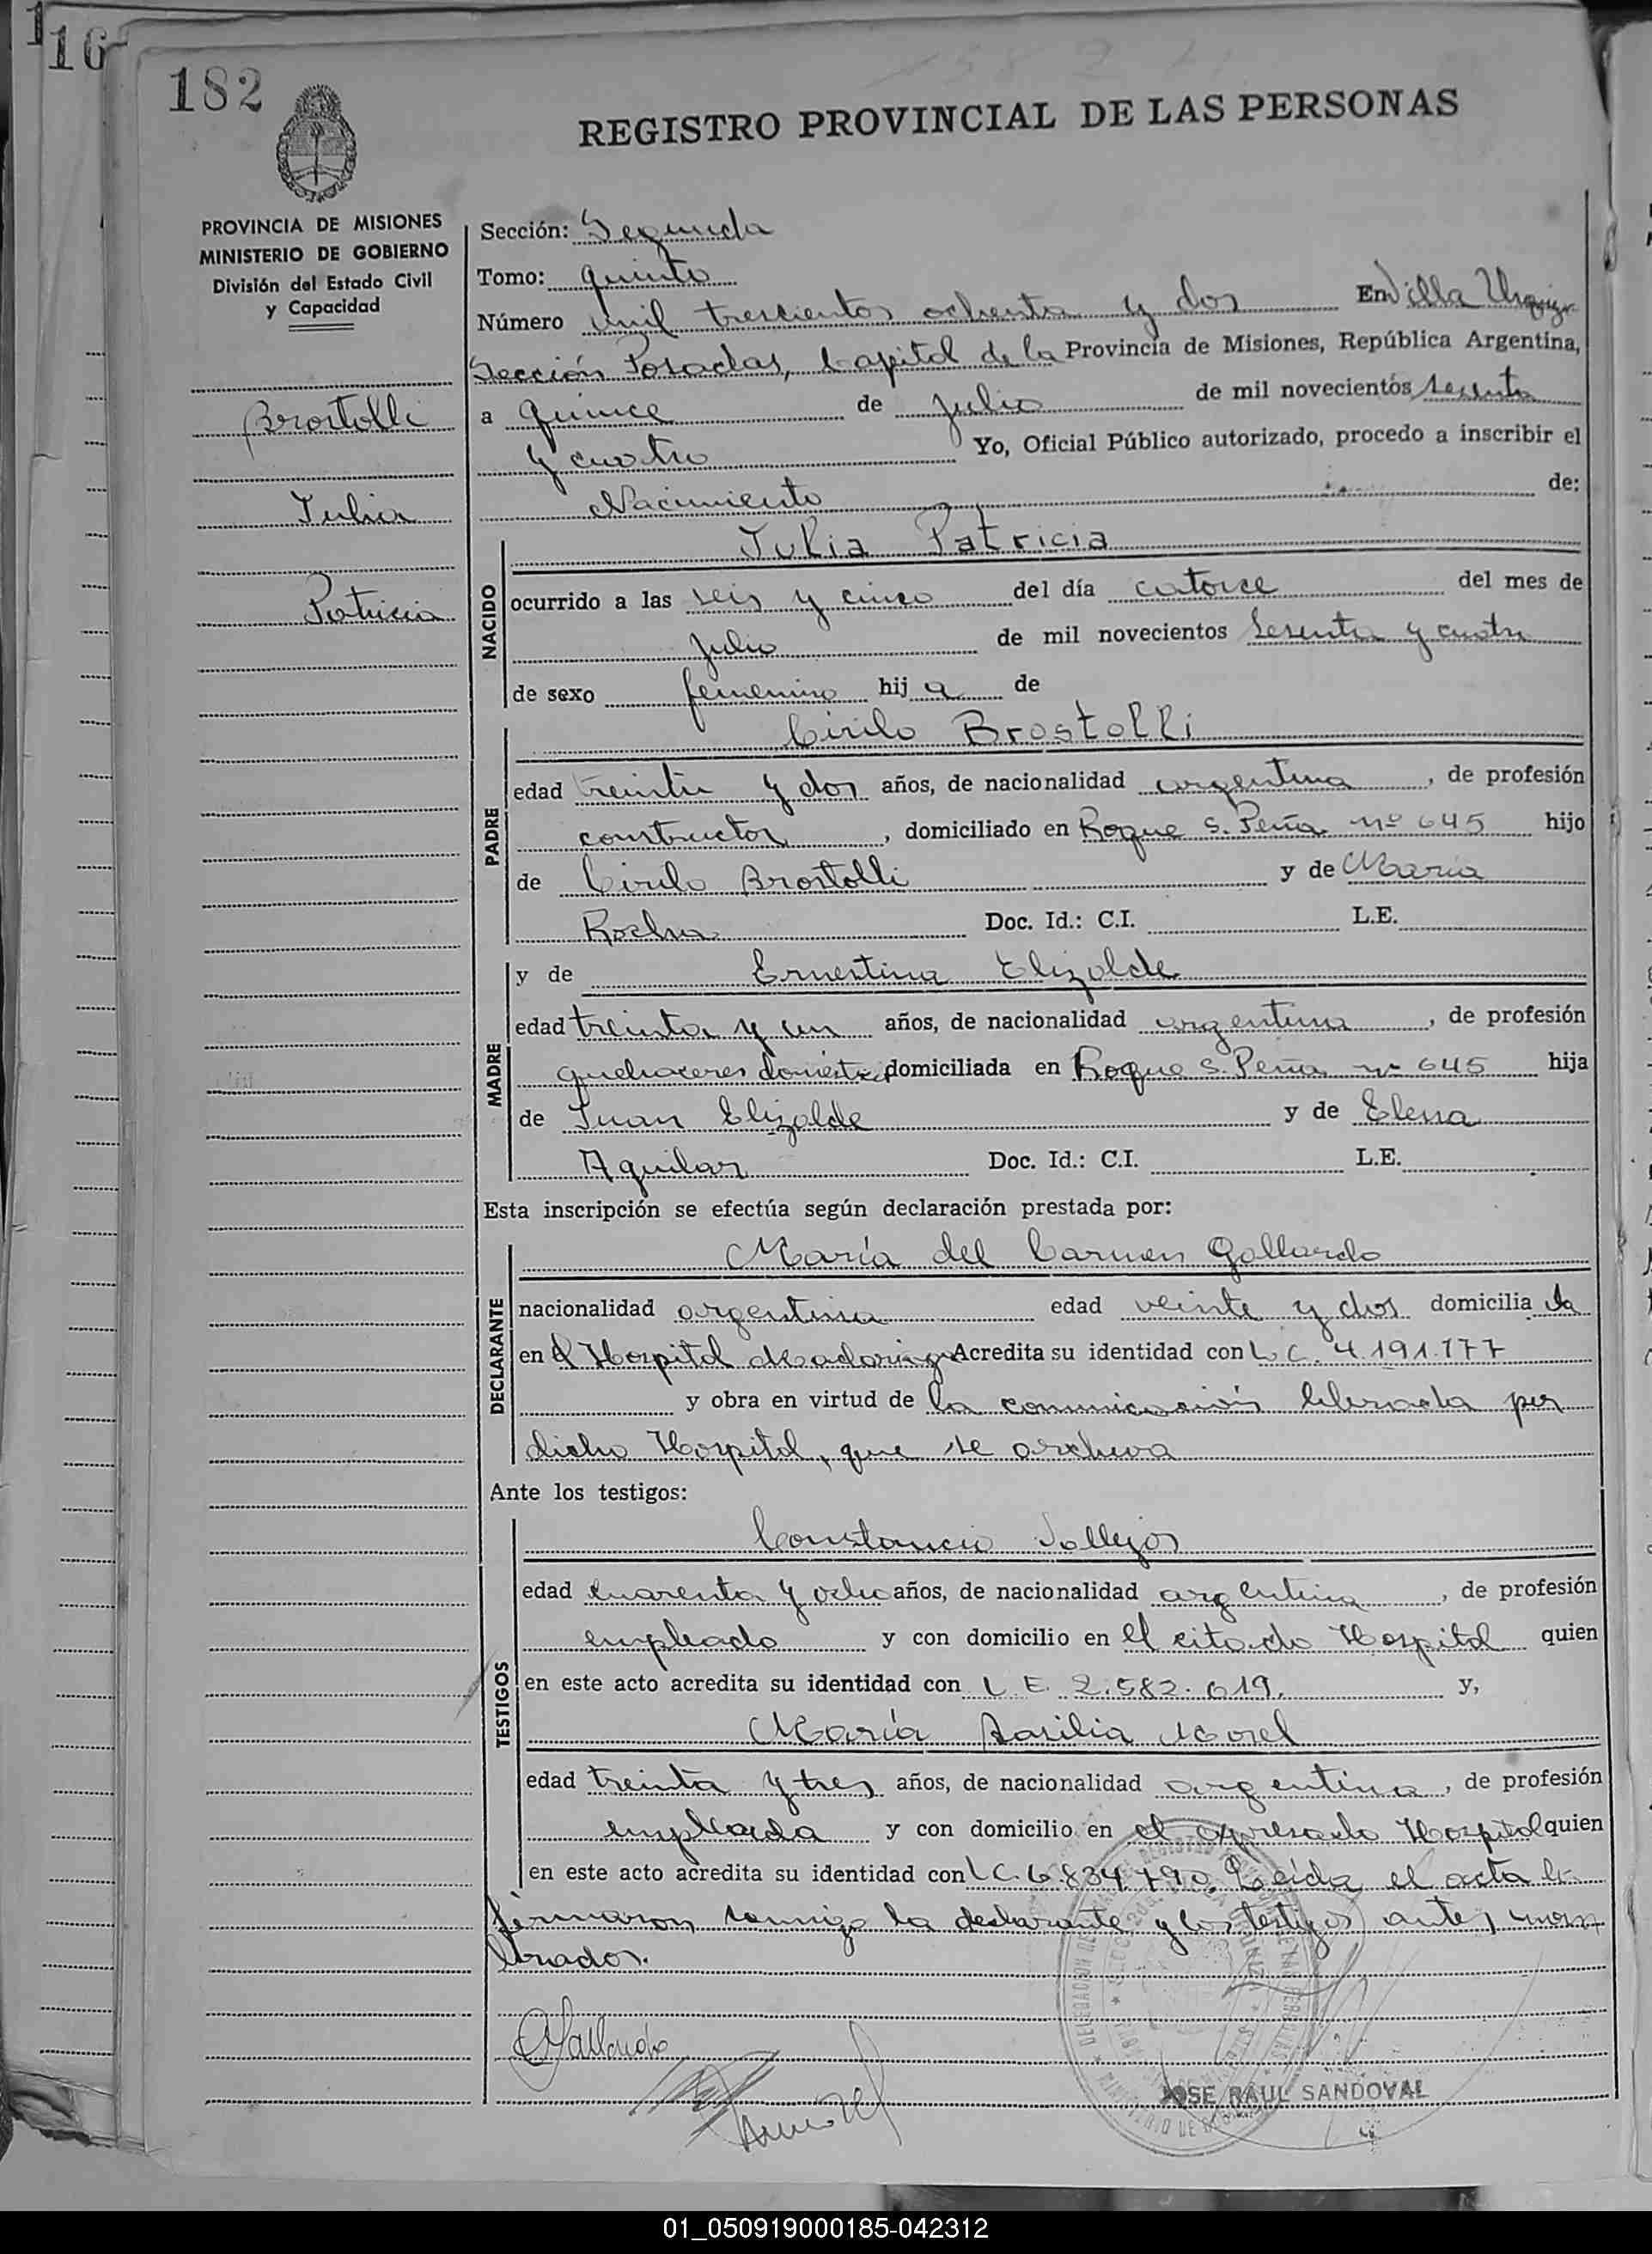 116
182
REGISTRO PROVINCIAL DE LAS PERSONAS
PROVINCIA DE MISIONES
MINISTERIO DE GOBIERNO
División del Estado Civil
y Capacidad
Brostolli
Julia
Patricia
Sección: Segunda
Tomo: quinto
Número mil trescientos ochenta y dos En Villa Urquiza
Sección Posadas, Capital de la Provincia de Misiones, República Argentina,
a quince de julio de mil novecientos sesenta
y cuatro Yo, Oficial Público autorizado, procedo a inscribir el
Nacimiento de:
NACIDO
Julia Patricia
ocurrido a las seis y cinco del día catorce del mes de
julio de mil novecientos sesenta y cuatro
de sexo femenino hij a de
PADRE
Cirilo Brostolli
edad treinta y dos años, de nacionalidad argentina, de profesión
constructor, domiciliado en Roque S. Peña nº 645 hijo
de Cirilo Brostolli y de María
Rocha Doc. Id.: C.I. L.E.
MADRE
y de Ernestina Elizalde
edad treinta y un años, de nacionalidad argentina, de profesión
quehaceres domésticos domiciliada en Roque S. Peña nº 645 hija
de Juan Elizalde y de Elena
Aguilar Doc. Id.: C.I. L.E.
Esta inscripción se efectúa según declaración prestada por:
DECLARANTE
María del Carmen Gallardo
nacionalidad argentina edad veinte y dos domicilia da
en el Hospital Madariaga Acredita su identidad con L.C. 4.191.177
y obra en virtud de la comunicación librada por
dicho Hospital, que se archiva
Ante los testigos:
TESTIGOS
Constancio Vallejos
edad cuarenta y ocho años, de nacionalidad argentina, de profesión
empleado y con domicilio en el citado Hospital quien
en este acto acredita su identidad con L E. 2.582.619. y,
María Basilia Morel
edad treinta y tres años, de nacionalidad argentina, de profesión
empleada y con domicilio en el expresado Hospital quien
en este acto acredita su identidad con L C. 6.834.790. Leída el acta la
firmaron conmigo la declarante y los testigos antes nom
brados.
Gallardo
JOSE RAUL SANDOVAL
01_050919000185-042312